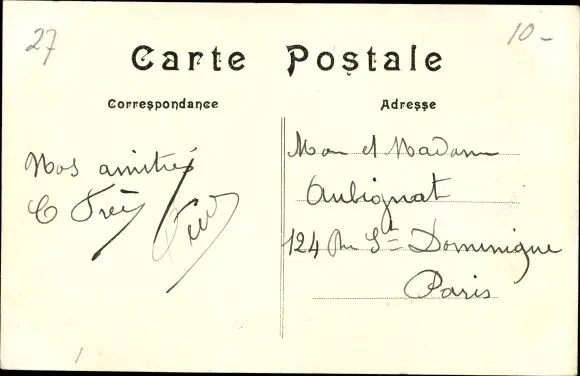 27
10-
Carte Postale
Correspondance
Adresse
Nos amitiés
Mon et Madame
Aubignat
124 Rue St= Dominique
Paris